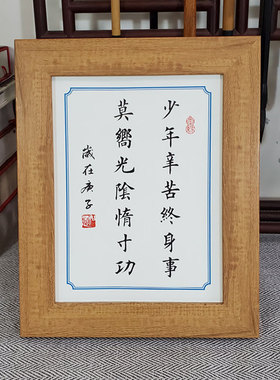 少年辛苦終身事
莫嚮光陰惰寸功
歲在庚子